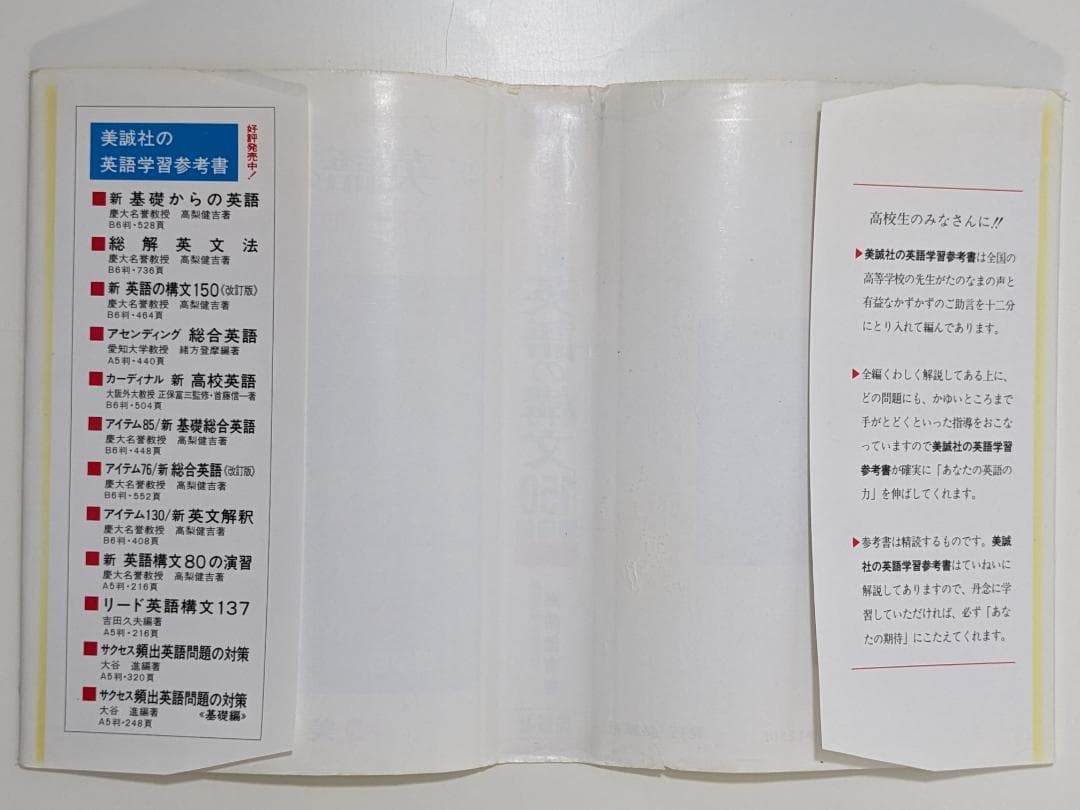 美誠社の
英語学習参考書
好評発売中!
■新 基礎からの英語
慶大名誉教授 高梨健吉著
B6判・528頁
■総解英文法
慶大名誉教授 高梨健吉著
B6判・736頁
■新 英語の構文150〈改訂版〉
慶大名誉教授 高梨健吉著
B6判・464頁
■アセンディング 総合英語
愛知大学教授 緒方登摩編著
A5判・440頁
■カーディナル 新 高校英語
大阪外大教授 正保富三監修・首藤信一著
B6判・504頁
■アイテム85/新 基礎総合英語
慶大名誉教授 高梨健吉著
B6判・448頁
■アイテム76/新 総合英語〈改訂版〉
慶大名誉教授 高梨健吉著
B6判・552頁
■アイテム130/新 英文解釈
慶大名誉教授 高梨健吉著
B6判・408頁
■新 英語構文80の演習
慶大名誉教授 高梨健吉著
A5判・216頁
■リード英語構文137
吉田久夫編著
A5判・216頁
■サクセス頻出英語問題の対策
大谷 進編著
A5判・320頁
■サクセス頻出英語問題の対策
大谷 進編著 《基礎編》
A5判・248頁
高校生のみなさんに!!
▶美誠社の英語学習参考書は全国の
高等学校の先生がたのなまの声と
有益なかずかずのご助言を十二分
にとり入れて編んであります。
▶全編くわしく解説してある上に、
どの問題にも、かゆいところまで
手がとどくといった指導をおこな
っていますので美誠社の英語学習
参考書が確実に「あなたの英語の
力」を伸ばしてくれます。
▶参考書は精読するものです。美誠
社の英語学習参考書はていねいに
解説してありますので、丹念に学
習していただければ、必ず「あな
たの期待」にこたえてくれます。